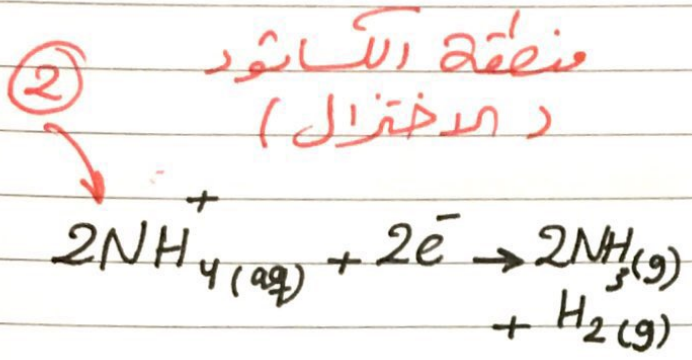 منطقة الكاثود
②
(الاختزال)
2NH₄⁺(aq) + 2e⁻ → 2NH₃(g)
+ H₂(g)